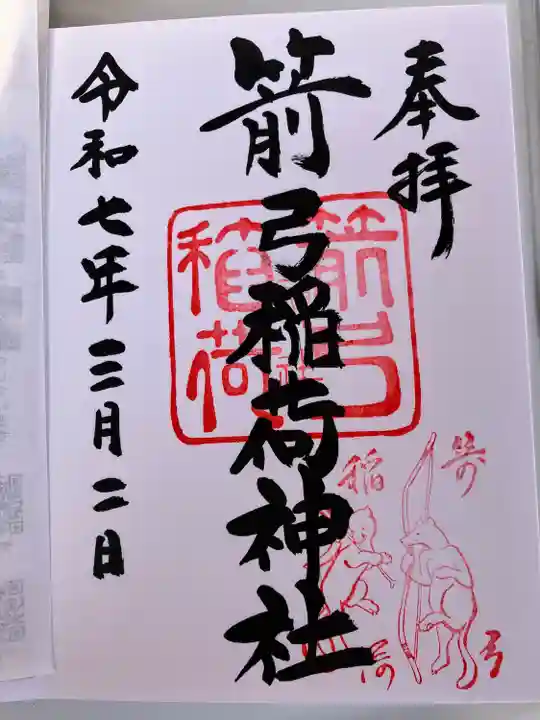 奉拝
箭弓稲荷神社
令和七年三月二日
箭弓
稲荷
箭
弓
稲
荷